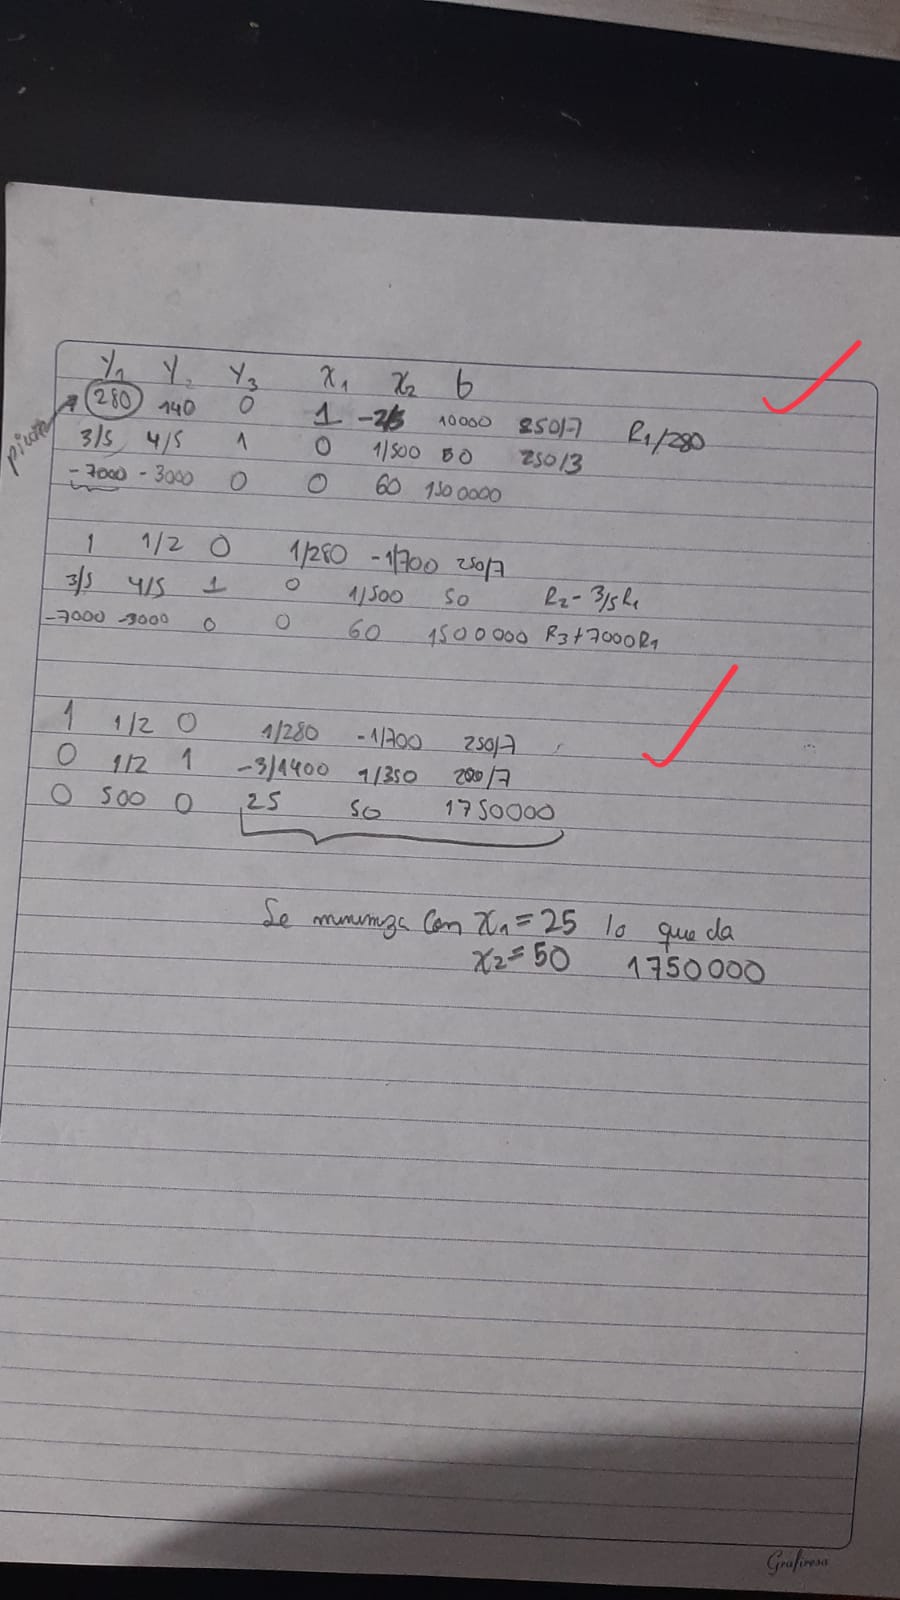 Y1 Y2 Y3 x1 x2 b
280 140 0 1 -2/5 10000 250/7 R1/280
pivote
3/5 4/5 1 0 1/500 50 250/3
-7000 -3000 0 0 60 1500000
1 1/2 0 1/280 -1/700 250/7
3/5 4/5 1 0 1/500 50 R2 - 3/5R1
-7000 -3000 0 0 60 1500000 R3+7000R1
1 1/2 0 1/280 -1/700 250/7
0 1/2 1 -3/1400 1/350 200/7
0 500 0 25 50 1750000
Se minimiza con x1=25 lo que da
x2=50 1750000
Grafiresa